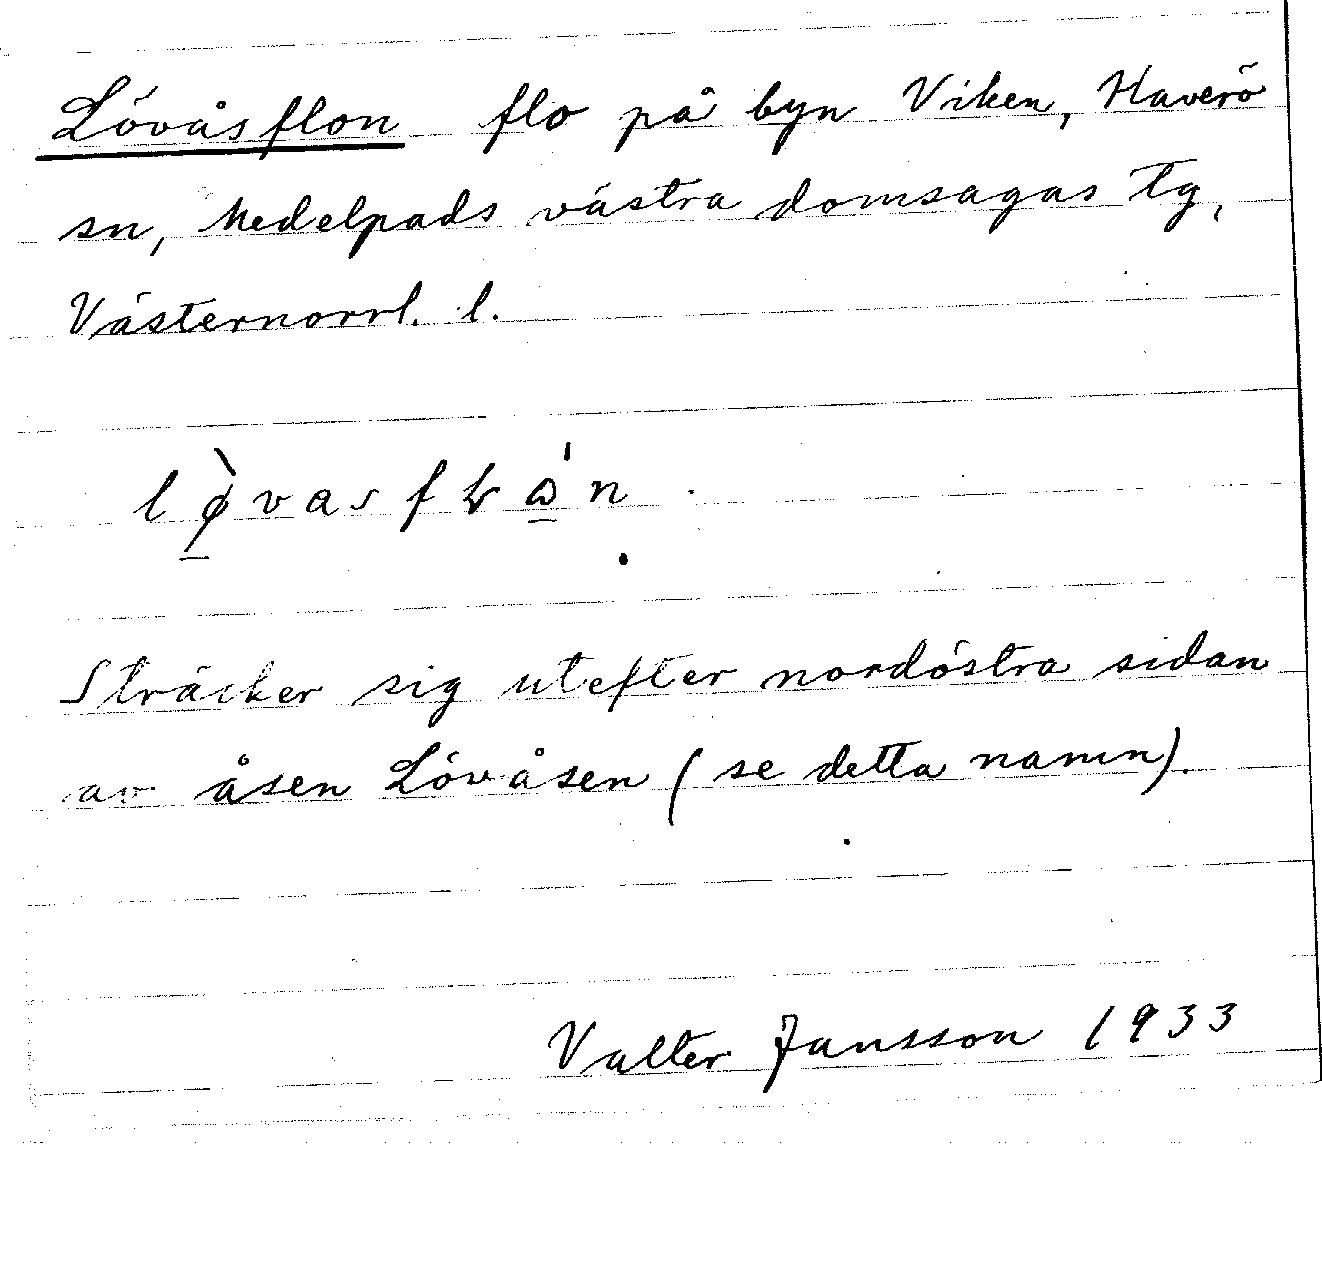 Lövåsflon flo på byn Viken, Haverö
sn, Medelpads västra domsagas tg,
Västernorrl. l.
Sträcker sig utefter nordöstra sidan
av åsen Lövåsen (se detta namn).
Valter Jansson 1933